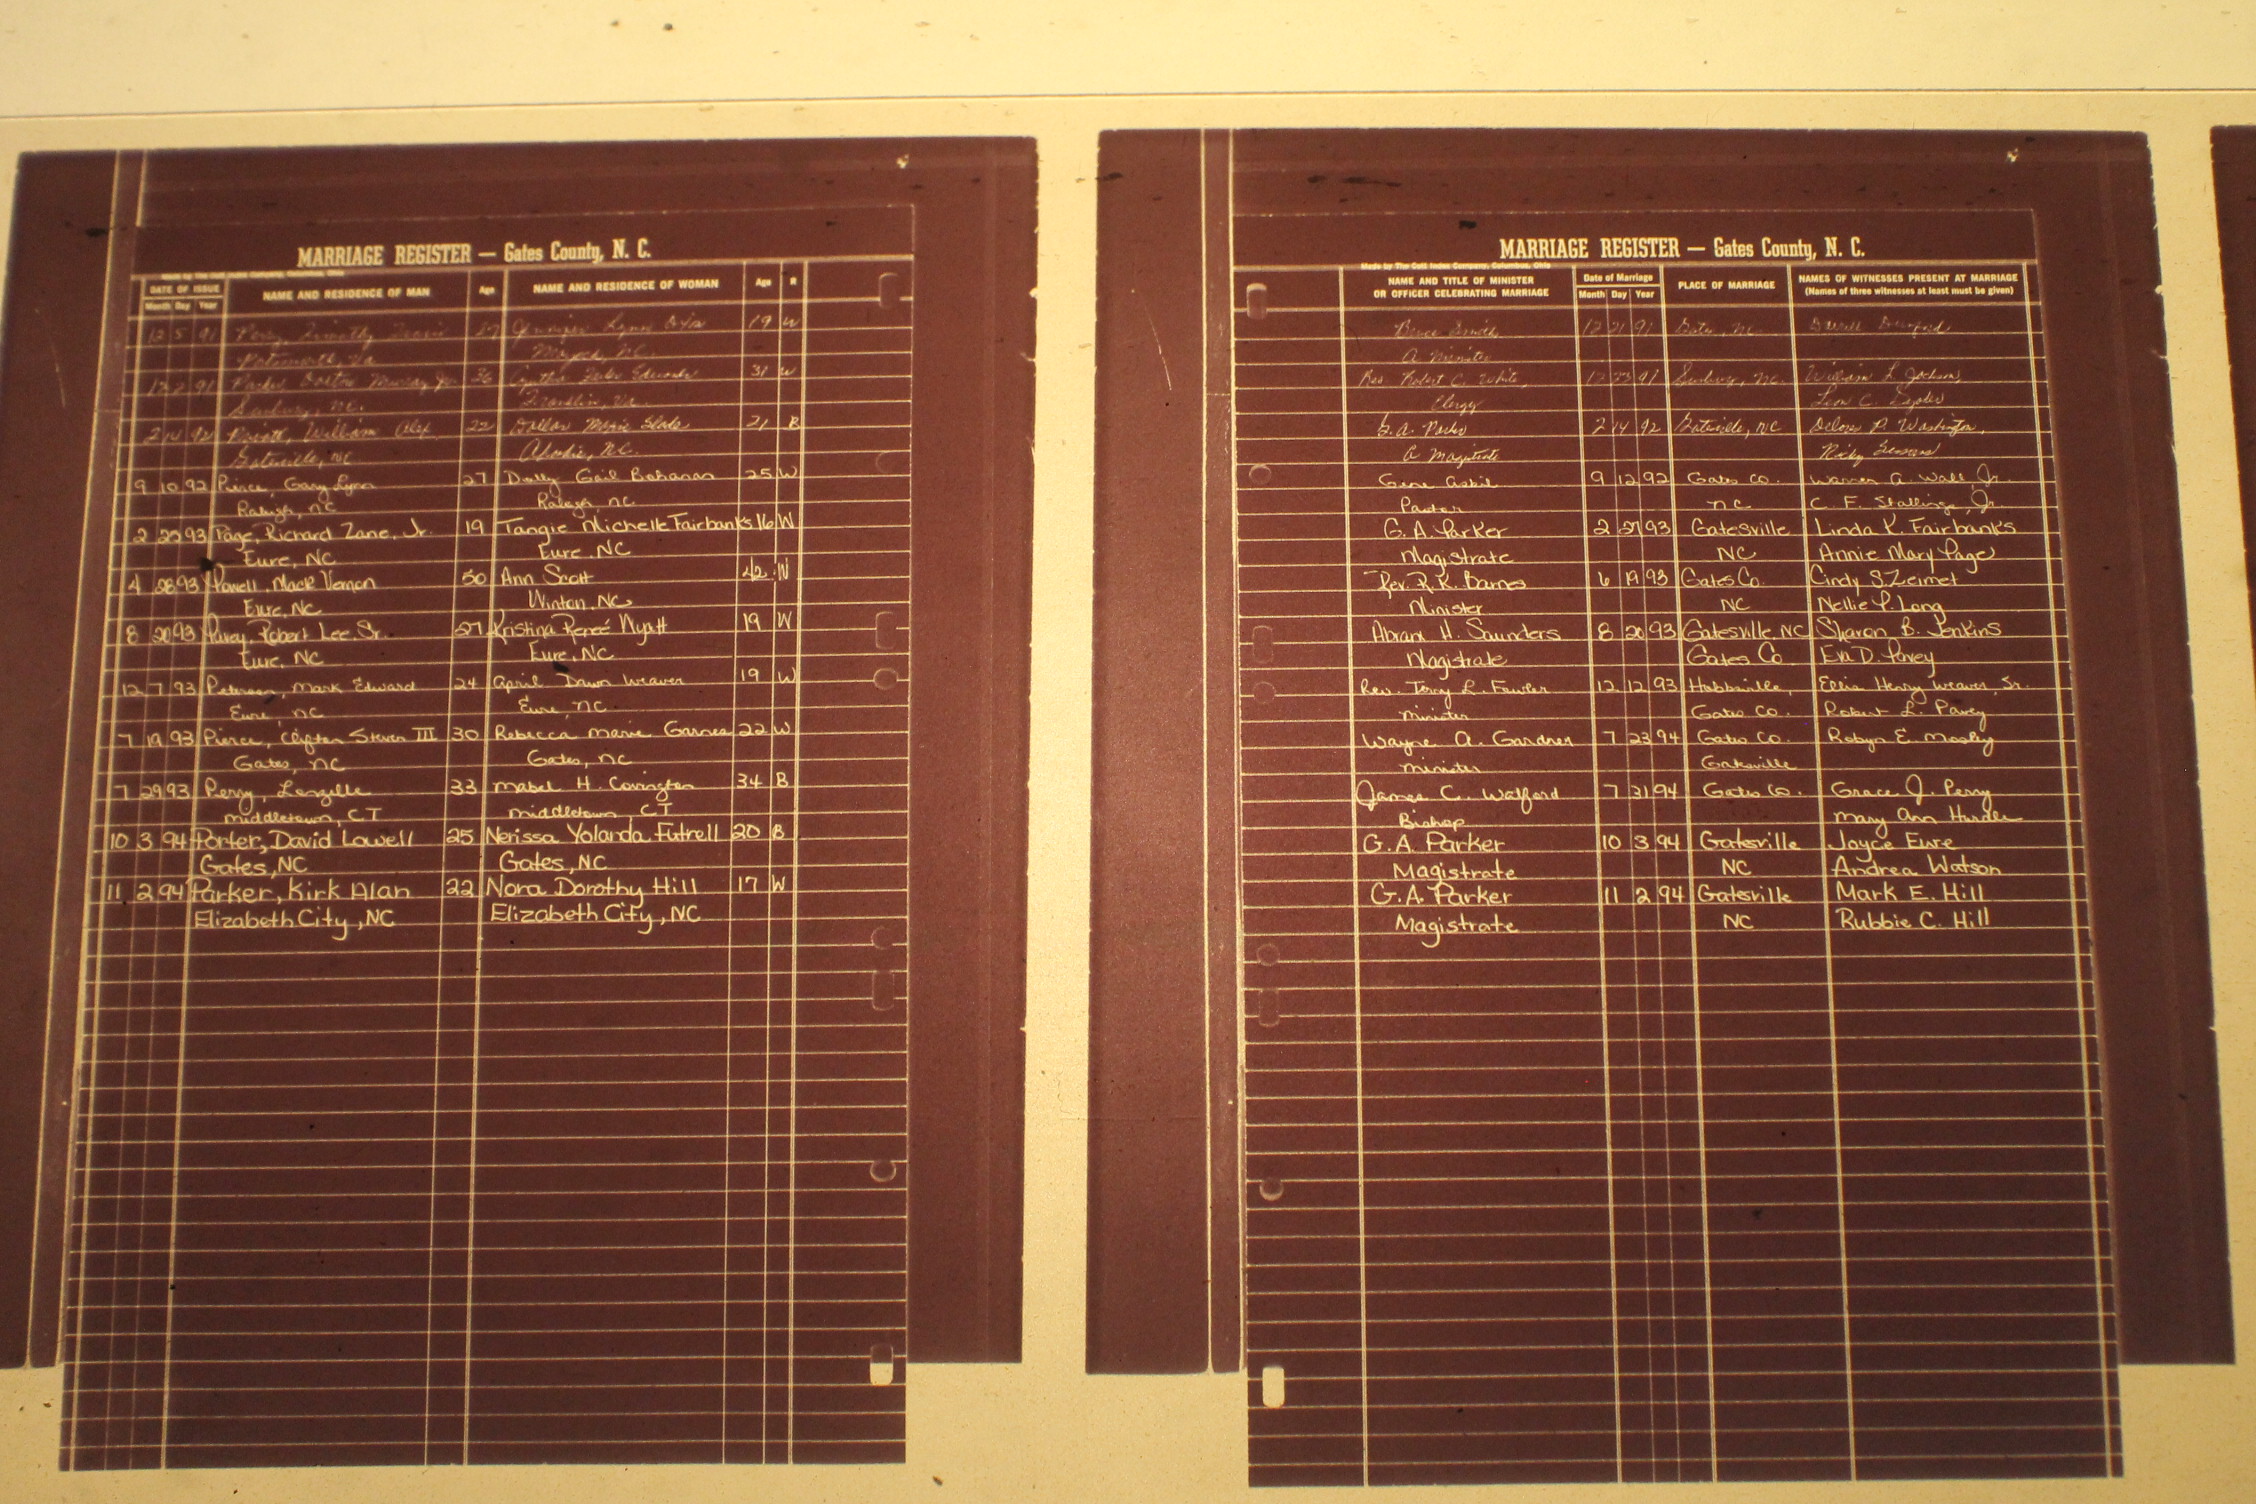 MARRIAGE REGISTER — Gates County, N. C.
DATE OF ISSUE NAME AND RESIDENCE OF MAN Age NAME AND RESIDENCE OF WOMAN Age R
Month Day Year
12 5 91 Perry, Timothy 27 Jennifer Lynn 19 W
Portsmouth, Va
12 91 Parker Murray Jr. 36 Cynthia Edwards 31 W
Sunbury, NC. Franklin, Va.
2 14 92 William 22 Marie Slade 21 B
Gatesville, NC Ahoskie, N.C.
9 10 92 Pierce, Gary Lynn 27 Dolly Gail Bohanan 25 W
Raleigh, nc Raleigh, nc
2 93 Page, Richard Zane, Jr. 19 Tangie Michelle Fairbanks 16 W
Eure, NC Eure, NC
4 28 93 Powell, Mack Vernon 50 Ann Scott 42 W
Eure, NC Winton, NC
8 20 93 Pavey, Robert Lee, Sr. 27 Kristina Reneé Wyatt 19 W
Eure, NC Eure, NC
12 7 93 Peterson, Mark Edward 24 April Dawn Weaver 19 W
Eure, nc Eure, nc
7 19 93 Pierce, Clifton Steven III 30 Rebecca Marie 22 W
Gates, nc Gates, nc
7 29 93 Perry, 33 Mabel H. Covington 34 B
middletown, CT middletown, CT
10 3 94 Porter, David Lowell 25 Nerissa Yolanda Futrell 20 B
Gates, NC Gates, NC
11 2 94 Parker, Kirk Alan 22 Nora Dorothy Hill 17 W
Elizabeth City, NC Elizabeth City, NC
MARRIAGE REGISTER — Gates County, N. C.
Made by The Cott Index Company, Columbus, Ohio
NAME AND TITLE OF MINISTER Date of Marriage PLACE OF MARRIAGE NAMES OF WITNESSES PRESENT AT MARRIAGE
OR OFFICER CELEBRATING MARRIAGE Month Day Year (Names of three witnesses at least must be given)
Bruce Smith 12 21 91 Gates, NC.
A Minister
Rev Robert C. White, 12 91 Sunbury, NC. William L.
Clergy Leon C.
G. A. Parker 2 14 92 Gatesville, NC Delores P. Washington,
A Magistrate Ricky
Gene 9 12 92 Gates Co. Warren A. Wall, Jr.
Pastor nc C. F. Stallings, Jr.
G. A. Parker 2 27 93 Gatesville Linda K. Fairbanks
Magistrate NC Annie Mary Page
Rev. R. K. Barnes 6 19 93 Gates Co. Cindy S. Zeimet
Minister NC Nellie P. Long
Abram H. Saunders 8 20 93 Gatesville NC Sharon B. Jenkins
Magistrate Gates Co Eva D. Pavey
Rev. Terry L. Fowler 12 12 93 Hobbsville, Ellis Henry Weaver, Sr.
Minister Gates Co. Robert L. Pavey
Wayne A. Gardner 7 23 94 Gates Co. Robyn E.
minister Gatesville
James C. Walford 7 31 94 Gates Co. Grace J. Perry
Bishop Mary Ann
G.A. Parker 10 3 94 Gatesville Joyce Eure
Magistrate NC Andrea Watson
G.A. Parker 11 2 94 Gatesville Mark E. Hill
Magistrate NC Rubbie C. Hill